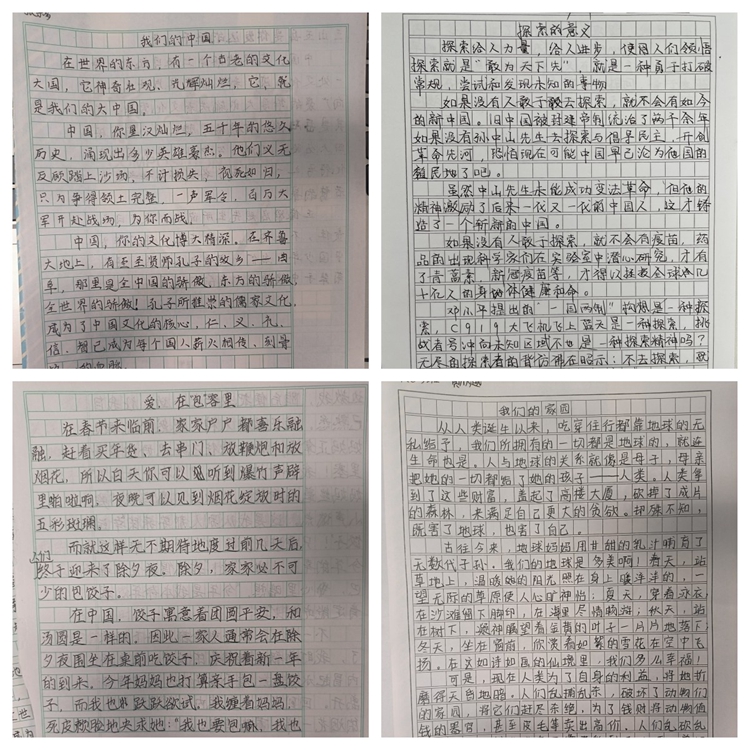 我们的中国
在世界的东方,有一个古老的文化
大国,它神奇壮观、光辉灿烂,它,就
是我们的大中国。
中国,你星汉灿烂,五千年的悠久
历史,涌现出多少英雄豪杰。他们义无
反顾踏上沙场,不计损失,视死如归,
只为争得领土完整,一声军令,百万大
军开赴战场,为你而战。
中国,你的文化博大精深。在齐鲁
大地上,有至圣贤师孔子的故乡——曲
阜,那里是全中国的骄傲,东方的骄傲,
全世界的骄傲!孔子所推崇的儒家文化,
成为了中国文化的核心,仁、义、礼、
信、智已成为每个国人薪火相传、到骨
探索的意义
探索给人力量,给人进步,使用人们领悟
探索就是“敢为天下先”,就是一种勇于打破
常规,尝试和发现未知的事物
如果没有人敢于去探索,就不会有如今
的新中国。旧中国被封建帝制统治了两千余年
如果没有孙中山先生去探索与倡导民主,开创
革命先河,恐怕现在可能中国早已沦为他国的
殖民地了吧。
虽然中山先生未能成功变法革命,但他的
精神激励了后来一代又一代前中国人,这才铸
造了一个新的中国。
如果没有人敢于探索,就不会有疫苗,药
品的出现科学家们在实验室中潜心研究,才有
了青蒿素,新冠疫苗等,才得以拯救全球几
十亿人的身体健康和命。
邓小平提出的“一国两制”构想是一种探
索,C919大飞机飞上蓝天是一种探索,挑
战者号冲向未知区域不也是一种探索精神吗?
无尽的探索者的背访佛在昭示:不去探索,既
爱,在包容里
在春节来临前,家家户户都喜乐融
融,赶着买年货、去串门、放鞭炮和放
烟花,所以白天你可以听到爆竹声辟
里啪啦啊,夜晚可以见到烟花绽放时的
五彩斑斓。
而就这样无不期待地度过前几天后,
人们
终于迎来了除夕夜。除夕,家家必不可
少的包饺子。
在中国,饺子寓意着团圆平安,和
汤圆是一样的,因此一家人通常会在除
夕夜围坐在桌前吃饺子,庆祝着新一年
的到来。今年妈妈也打算亲手包一盘饺
子,而我也跃跃欲试,我缠着妈妈,
死皮赖脸地央求她:“我也要包嘛,我也
我们的家园
从人类诞生以来,吃穿住行都靠地球的无
私给予,我们所拥有的一切都是地球的,就连
生命也是。人与地球的关系就像是母子,母亲
把她的一切都给了她的孩子——人类。人类拿
到了这些财富,盖起了高楼大厦,砍掉了成片
的森林,来满足自己更大的贪欲。把殊不知,
既害了地球,也害了自己。
古往今来,地球妈妈用甘甜的乳汁哺育了
无数代子孙。我们的地球是多美啊!春天,站
草地上,温暖她的阳光照在身上暖洋洋的,一
望无际的草原使人心旷神怡;夏天,穿着泳衣
在沙滩留下脚印,在海里尽情物嬉;秋天,站
在树下,凝神瞩望着金黄的叶子一片片地落下;
冬天,坐在窗前,欣赏着如絮的雪花在空中飞
扬。在这如诗如画的仙境里,我们多么幸福!
可是,现在人类为了自身的利益,将地折
磨得天昏地暗。人们乱捕乱杀,破坏了动物们
的家园,将它们赶尽杀绝,为了钱财将动物值
钱的器官,甚至皮毛辜卖出高价,人们乱砍乱